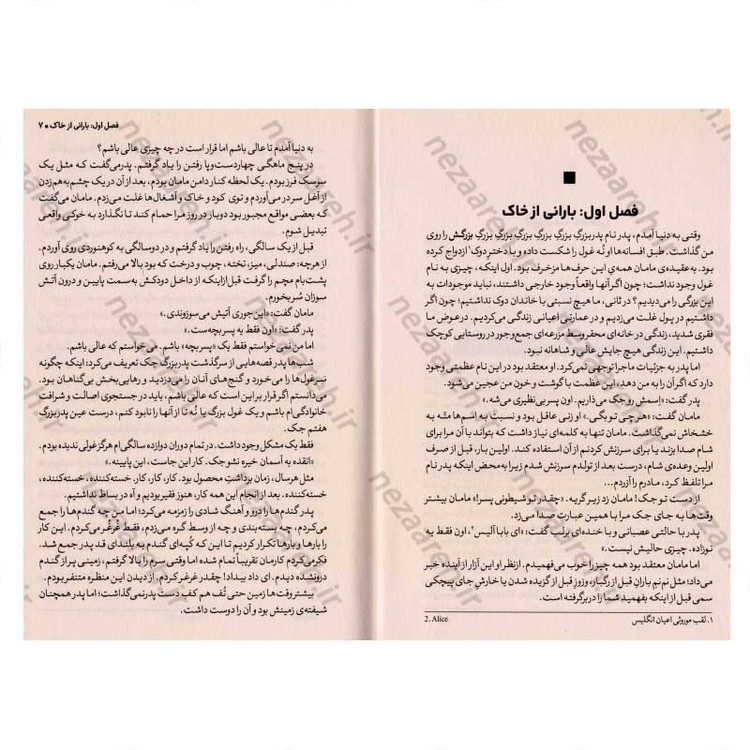 فصل اول: بارانی از خاک
وقتی به دنیا آمدم، پدر نام پدربزرگِ بزرگِ بزرگِ بزرگِ بزرگِ بزرگِ بزرگش را روی
من گذاشت. طبق افسانه‌ها او نُه غول را شکست داده و با دخترِ دوک¹ ازدواج کرده
بود. به عقیده‌ی مامان همه‌ی این حرف‌ها مزخرف بود. اول اینکه، چیزی به نام
غول وجود نداشت؛ چون اگر آنها واقعاً وجود خارجی داشتند، نباید موجودات به
این بزرگی را می‌دیدیم؟ در ثانی، ما هیچ نسبتی با خاندان دوک نداشتیم؛ چون اگر
داشتیم در پول غلت می‌زدیم و در عمارتی اعیانی زندگی می‌کردیم. در عوض ما
فقری شدید، زندگی در خانه‌ای محقر وسط مزرعه‌ای جمع‌وجور در روستایی کوچک
داشتیم. این زندگی هیچ جایش عالی و شاهانه نبود.
اما پدر به جزئیات ماجرا توجهی نمی‌کرد. او معتقد بود در این نام عظمتی وجود
دارد که اگر آن را به من دهد، این عظمت با گوشت و خون من عجین می‌شود.
پدر گفت: «اِسمش رو جک می‌ذاریم. اون پسر بی‌نظیری می‌شه.»
مامان گفت: «هرچی تو بگی.» او زنی عاقل بود و نسبت به اسم‌ها متّه به
خشخاش نمی‌گذاشت. مامان تنها به کلمه‌ای نیاز داشت که بتواند با آن مرا برای
شام صدا بزند یا برای سرزنش کردنم از آن استفاده کند. اولین بار، قبل از صرف
اولین وعده‌ی شام، درست بعد از تولدم سرزنش شدم زیرا به‌محض اینکه پدر نام
مرا تلفظ کرد، مادرم را آزردم...
از دست تو جک! مامان زد زیر گریه. «چقدر تو شیطونی پسر!» مامان بیشتر
وقت‌ها به جای جک مرا با همین عبارت صدا می‌زد.
پدر با حالتی عصبانی و با خنده‌ای بر لب گفت: «ای بابا آلیس²، اون فقط یه
نوزاده. چیزی حالیش نیست.»
اما مامان معتقد بود همه چیز را خوب می‌فهمیدم. از نظر او این آزار از آینده خبر
می‌داد؛ مثل نم‌نم باران قبل از رگبار، وزوزِ قبل از گزیده شدن یا خارش جای پیچکی
سمی قبل از اینکه بفهمید شما را در بر گرفته است.
۱. لقب موروثی اعیان انگلیس
2. Alice
فصل اول: بارانی از خاک ■ ۷
به دنیا آمدم تا عالی باشم اما قرار است در چه چیزی عالی باشم؟
در پنج ماهگی چهاردست‌وپا رفتن را یاد گرفتم. پدر می‌گفت که مثل یک
سوسک فرز بودم. یک لحظه کنار دامن مامان بودم، بعد از آن در یک چشم‌به‌هم‌زدن
از آغل سر در می‌آوردم و توی کود و خاک و آشغال‌ها غلت می‌زدم. مامان می‌گفت
که بعضی مواقع مجبور بود دو بار در روز مرا حمام کند تا نگذارد به خوکی واقعی
تبدیل شوم.
قبل از یک سالگی، راه رفتن را یاد گرفتم و در دوسالگی به کوهنوردی روی آوردم.
از هرچه: صندلی، میز، تخته، چوب و درخت که بود بالا می‌رفتم. مامان یکبار روی
پشت‌بام مچم را گرفت قبل از اینکه از داخل دودکش به سمت پایین و درون آتش
سوزان سُر بخورم.
مامان گفت: «این‌جوری آتیش می‌سوزوندی.»
پدر گفت: «اون فقط یه پسربچه‌ست.»
اما من نمی‌خواستم فقط یک «پسربچه» باشم. می‌خواستم که عالی باشم.
شب‌ها پدر قصه‌هایی از سرگذشت پدربزرگ جک تعریف می‌کرد؛ اینکه چگونه
سر غول‌ها را می‌خورد و گنج‌های آنان را می‌دزدید و رهایی‌بخش بی‌گناهان بود.
می‌دانستم اگر قرار بر این است که عالی باشم، باید در جستجوی اصالت و شرافت
خانوادگی‌ام باشم و یک غول بزرگ یا نُه تا از آنها را نابود کنم، درست عین پدربزرگ
هفتم جک.
فقط یک مشکل وجود داشت. در تمام دوران دوازده سالگی‌ام هرگز غولی ندیده بودم.
«انقده به آسمان خیره نشو جک. کار این جاست، این پایینه.»
مثل هرسال، زمان برداشتِ محصول بود. کار، کار، کار. خسته‌کننده، خسته‌کننده،
خسته‌کننده. بعد از انجام این همه کار، هنوز فقیر بودیم و آه در بساط نداشتیم.
پدر گندم‌ها را درو و آهنگ شادی را زمزمه می‌کرد؛ اما من چه گندم‌ها را جمع
می‌کردم، چه بسته‌بندی و چه از وسط گره می‌زدم، فقط غرغُر می‌کردم. این کار
را بارها و بارها تکرار کردیم تا این که کُپه‌ای گندم به بلندای قد پدر جمع شد.
فکر می‌کردم کارمان تقریباً تمام شده اما وقتی سرم را بالا گرفتم، زمینی پر از گندم
درو نشده دیدم. ای داد بیداد! چقدر غرغر کردم. از دیدن این منظره متنفر بودم.
بیشتر وقت‌ها زمین حتی تُف هم کفِ دستِ پدر نمی‌گذاشت؛ اما پدر همچنان
شیفته‌ی زمینش بود و آن را دوست داشت.
nezaareh.ir